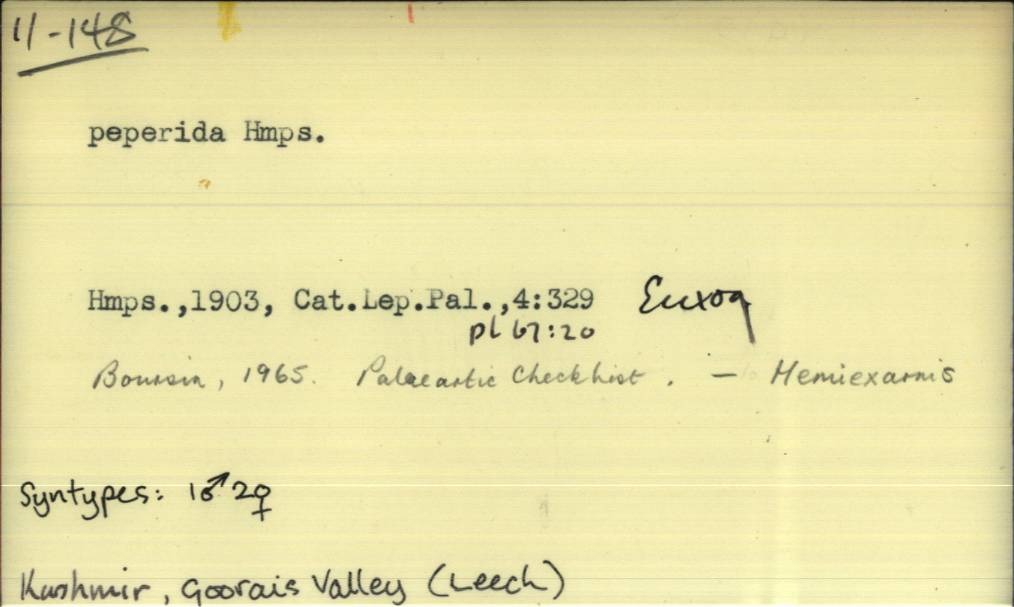 11-148
peperida Hmps.
Hmps.,1903, Cat.Lep.Pal.,4:329 Euxoa
pl 67:20
Boursin, 1965. Palaearctic Checklist. — Hemiexarnis
Syntypes: 1♂ 2♀
Kashmir, Goorais Valley (Leech)